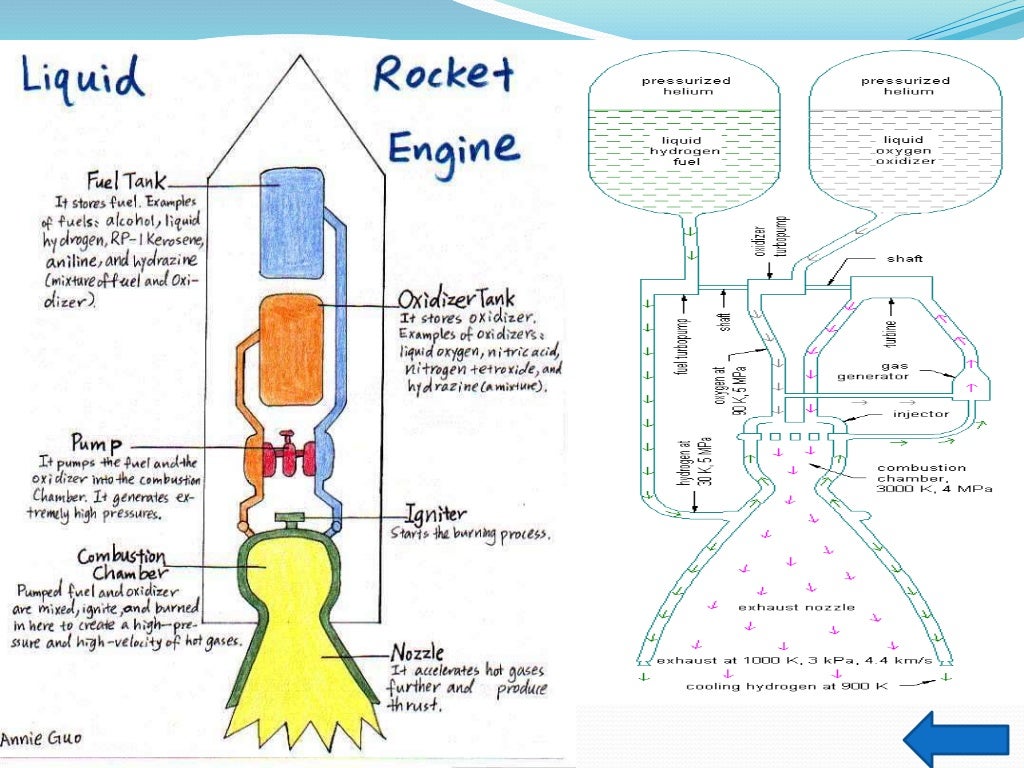 Liquid Rocket
Engine
Fuel Tank
It stores fuel. Examples
of fuels: alcohol, liquid
hydrogen, RP-1 Kerosene,
aniline, and hydrazine
(mixture of fuel and Oxi-
dizer).
Oxidizer Tank
It stores oxidizer.
Examples of oxidizers:
liquid oxygen, nitric acid,
nitrogen tetroxide, and
hydrazine (a mixture).
Pump
It pumps the fuel and the
oxidizer into the combustion
Chamber. It generates ex-
tremely high pressures.
Igniter
Starts the burning process.
Combustion
Chamber
Pumped fuel and oxidizer
are mixed, ignite, and burned
in here to create a high-pre-
ssure and high-velocity of hot gases.
Nozzle
It accelerates hot gases
further and produce
thrust.
Annie Guo
pressurized
helium
pressurized
helium
liquid
hydrogen
fuel
liquid
oxygen
oxidizer
oxidizer
turbopump
shaft
fuel turbopump
shaft
turbine
oxygen at
90 K, 5 MPa
gas
generator
injector
hydrogen at
30 K, 5 MPa
combustion
chamber,
3000 K, 4 MPa
exhaust nozzle
exhaust at 1000 K, 3 kPa, 4.4 km/s
cooling hydrogen at 900 K